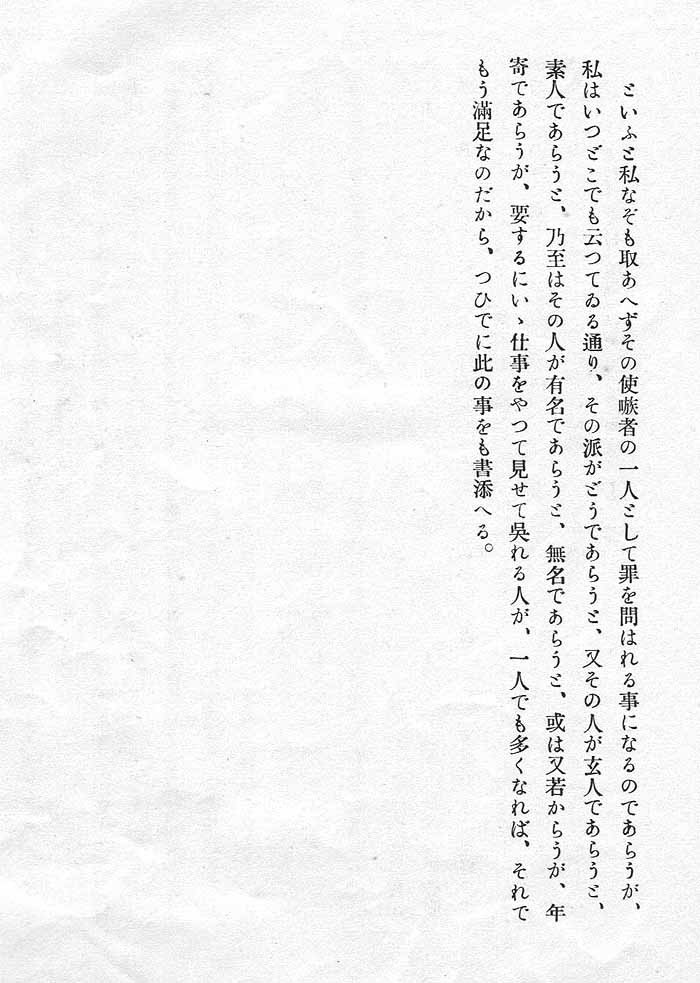 といふと私なぞも取あへずその使嗾者の一人として罪を問はれる事になるのであらうが、
私はいつどこでも云つてゐる通り、その派がどうであらうと、又その人が玄人であらうと、
素人であらうと、乃至はその人が有名であらうと、無名であらうと、或は又若からうが、年
寄であらうが、要するにいゝ仕事をやつて見せて吳れる人が、一人でも多くなれば、それで
もう滿足なのだから、つひでに此の事をも書添へる。